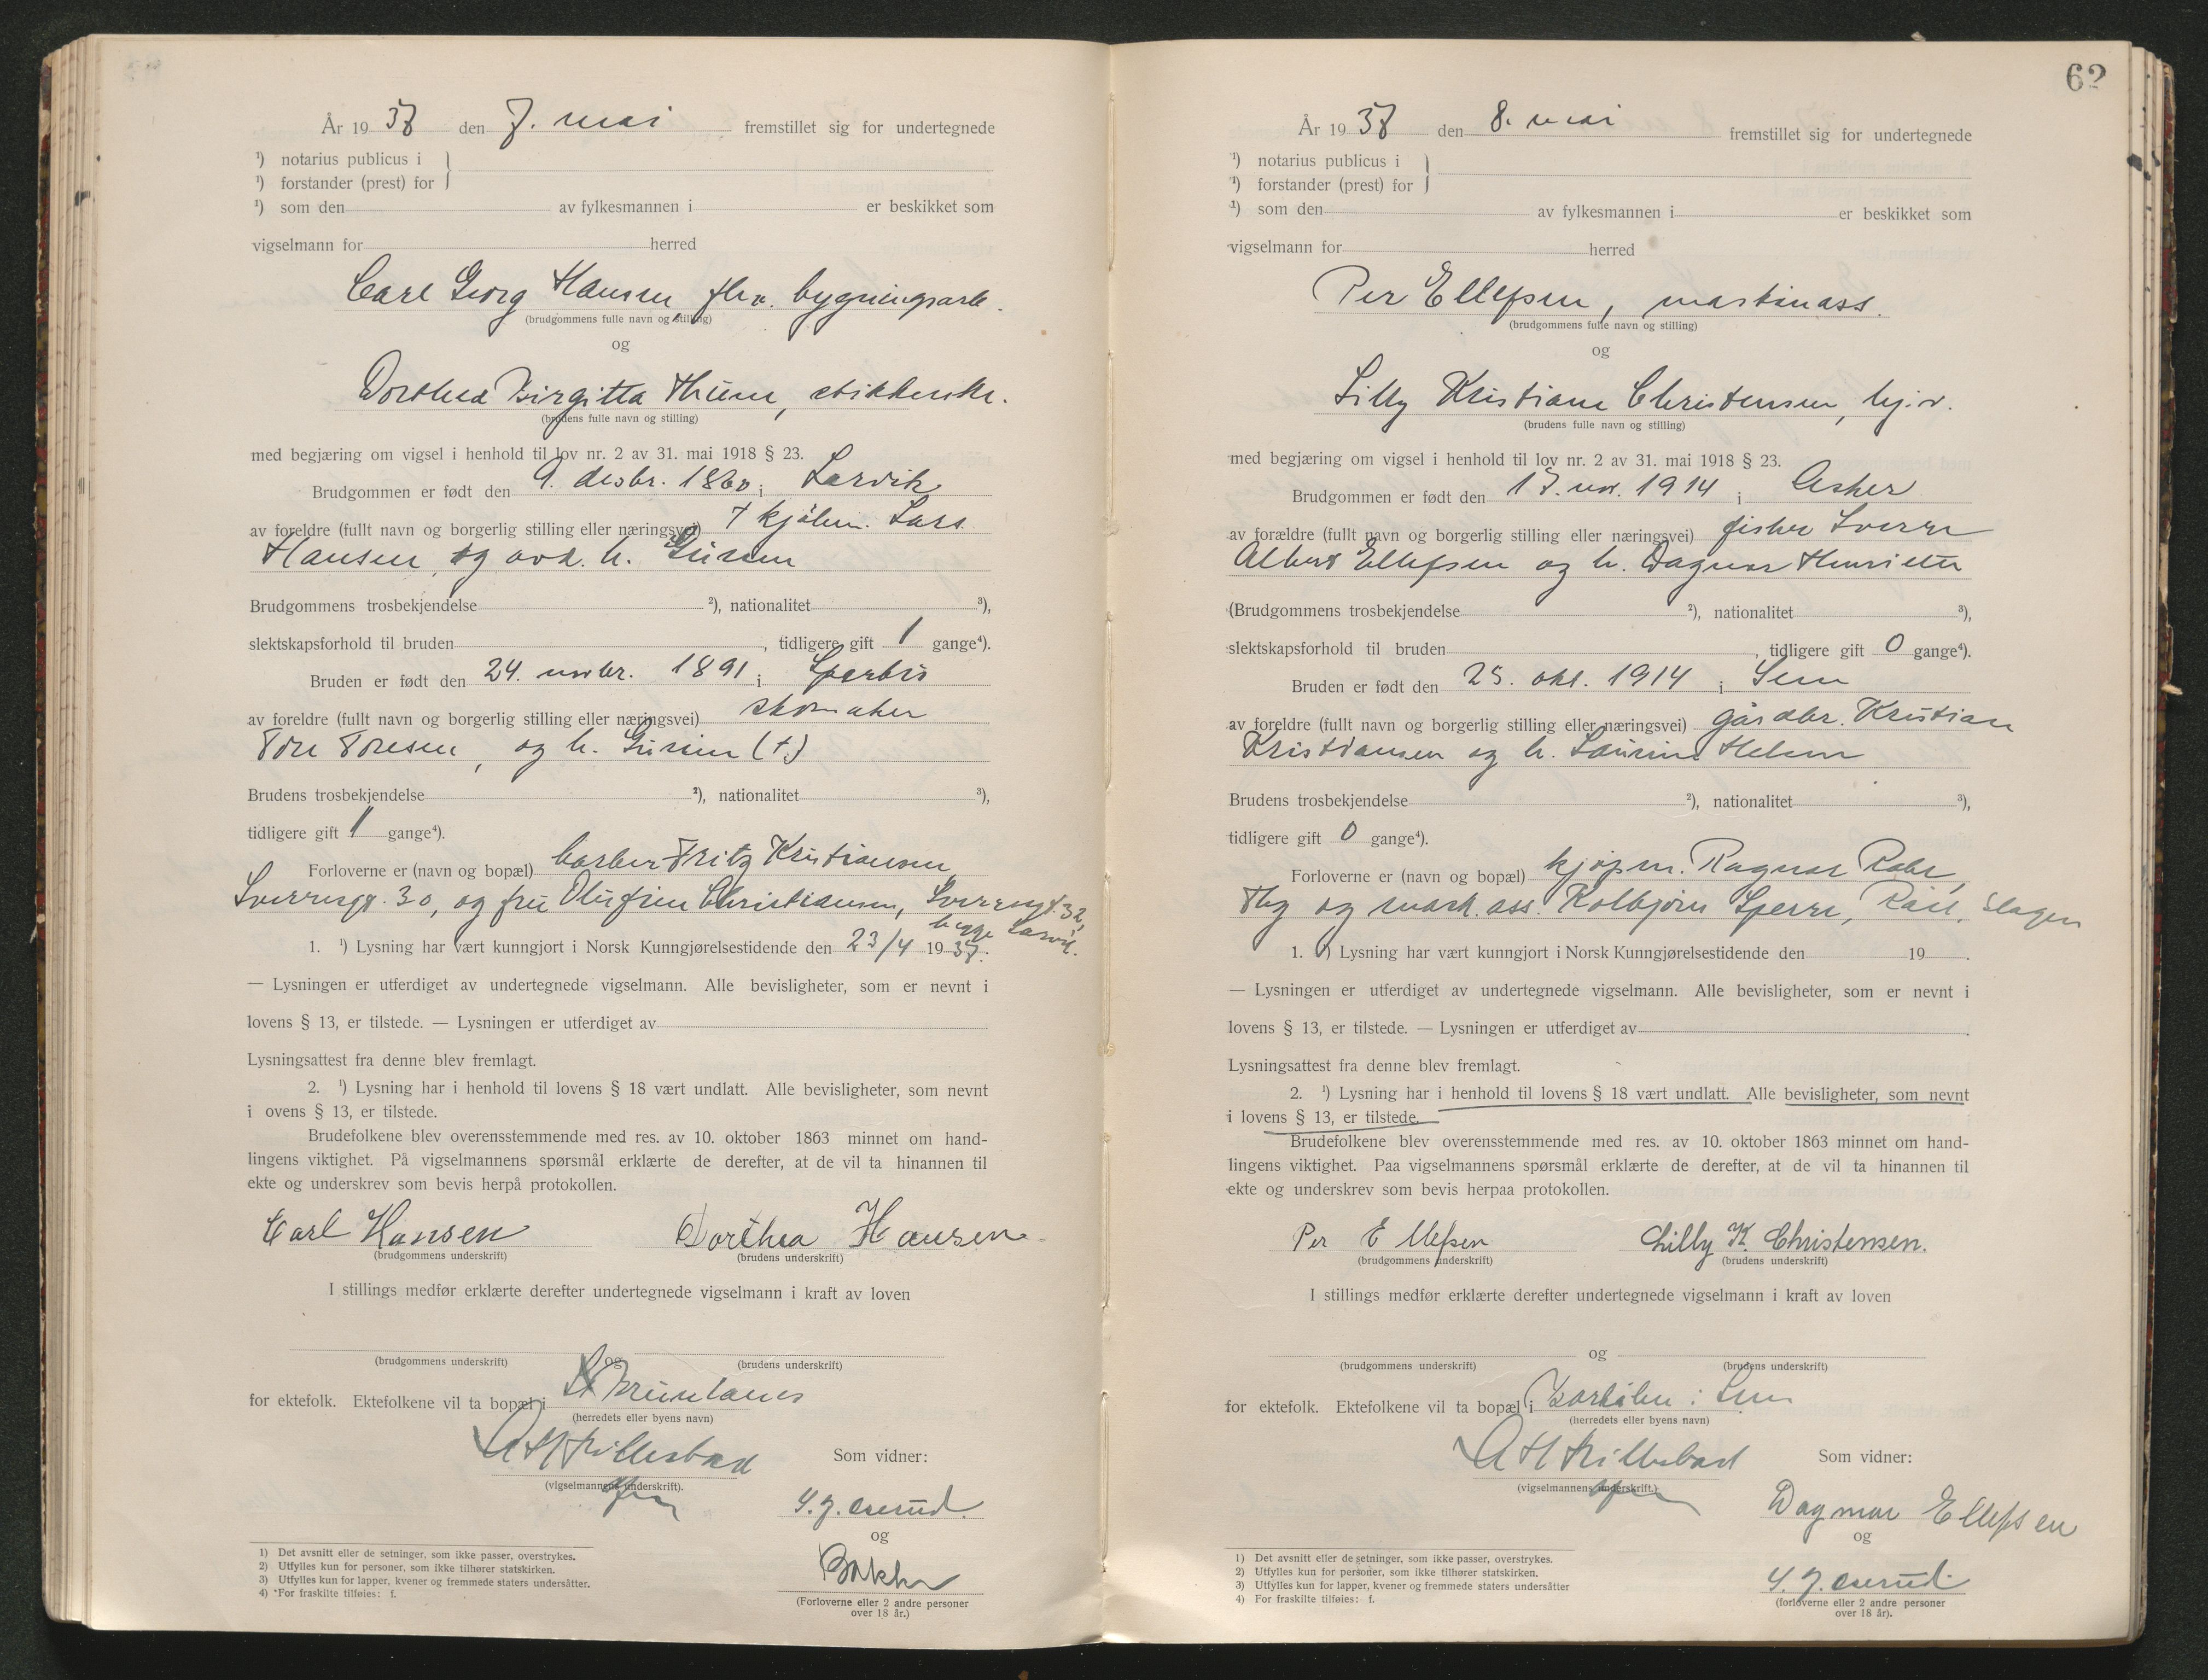 År 19 37 den 7. mai fremstillet sig for undertegnede
¹) notarius publicus i
¹) forstander (prest) for
¹) som den av fylkesmannen i er beskikket som
vigselmann for herred
Carl Georg Hansen, fhv. bygningsarb.
(brudgommens fulle navn og stilling)
og
Dorthea Birgitta Thune,
(brudens fulle navn og stilling)
med begjæring om vigsel i henhold til lov nr. 2 av 31. mai 1918 § 23.
Brudgommen er født den 9. desbr. 1860 i Larvik
av foreldre (fullt navn og borgerlig stilling eller næringsvei) † kjølm. Lars
Hansen, og avd. h. Gurine
Brudgommens trosbekjendelse ²), nationalitet ³),
slektskapsforhold til bruden , tidligere gift 1 gange⁴).
Bruden er født den 24. novbr. 1891 i
av foreldre (fullt navn og borgerlig stilling eller næringsvei) skomaker
Tore Toresen, og h. (†)
Brudens trosbekjendelse ²), nationalitet ³),
tidligere gift 1 gange⁴).
Forloverne er (navn og bopæl) barber Fritz Kristiansen,
Sverresgt. 30, og fru Olufine Christiansen, Sverresgt. 32,
begge Larvik.
1. ¹) Lysning har vært kunngjort i Norsk Kunngjørelsestidende den 23/4 19 37.
— Lysningen er utferdiget av undertegnede vigselmann. Alle bevisligheter, som er nevnt i
lovens § 13, er tilstede. — Lysningen er utferdiget av
Lysningsattest fra denne blev fremlagt.
2. ¹) Lysning har i henhold til lovens § 18 vært undlatt. Alle bevisligheter, som nevnt
i ovens § 13, er tilstede.
Brudefolkene blev overensstemmende med res. av 10. oktober 1863 minnet om hand-
lingens viktighet. På vigselmannens spørsmål erklærte de derefter, at de vil ta hinannen til
ekte og underskrev som bevis herpå protokollen.
Carl Hansen Dorthea Hansen
(brudgommens underskrift) (brudens underskrift)
I stillings medfør erklærte derefter undertegnede vigselmann i kraft av loven
og
(brudgommens underskrift) (brudens underskrift)
for ektefolk. Ektefolkene vil ta bopæl i Brunlanes
(herredets eller byens navn)
Som vidner:
(vigselmannens underskrift).
og
(Forloverne eller 2 andre personer
over 18 år.)
1) Det avsnitt eller de setninger, som ikke passer, overstrykes.
2) Utfylles kun for personer, som ikke tilhører statskirken.
3) Utfylles kun for lapper, kvener og fremmede staters undersåtter.
4) *For fraskilte tilføies: f.
62
År 19 37 den 8. mai fremstillet sig for undertegnede
¹) notarius publicus i
¹) forstander (prest) for
¹) som den av fylkesmannen i er beskikket som
vigselmann for herred
Per Ellefsen, maskinass.
(brudgommens fulle navn og stilling)
og
Lilly Kristiane Christensen, hj.v.
(brudens fulle navn og stilling)
med begjæring om vigsel i henhold til lov nr. 2 av 31. mai 1918 § 23.
Brudgommen er født den 17. nov. 1914 i Asker
av forældre (fullt navn og borgerlig stilling eller næringsvei) fisker Sverre
Albert Ellefsen og h. Dagmar Henriette
(Brudgommens trosbekjendelse ²), nationalitet ³),
slektskapsforhold til bruden , tidligere gift 0 gange⁴).
Bruden er født den 25. okt. 1914 i Sem
av foreldre (fullt navn og borgerlig stilling eller næringsvei) gårdbr. Kristian
Kristiansen og h. Laurine Helene
Brudens trosbekjendelse ²), nationalitet ³),
tidligere gift 0 gange⁴).
Forloverne er (navn og bopæl) kjøpm. Ragnar
Tbg og mask. ass. Kolbjørn Sperre, Råel, Slagen
1. ¹) Lysning har vært kunngjort i Norsk Kunngjørelsestidende den 19 .
— Lysningen er utferdiget av undertegnede vigselmann. Alle bevisligheter, som er nevnt i
lovens § 13, er tilstede. — Lysningen er utferdiget av .
Lysningsattest fra denne blev fremlagt.
2. ¹) Lysning har i henhold til lovens § 18 vært undlatt. Alle bevisligheter, som nevnt
i lovens § 13, er tilstede.
Brudefolkene blev overensstemmende med res. av 10. oktober 1863 minnet om hand-
lingens viktighet. Paa vigselmannens spørsmål erklærte de derefter, at de vil ta hinannen til
ekte og underskrev som bevis herpaa protokollen.
Per Ellefsen Lilly K. Christensen.
(brudgommens underskrift) (brudens underskrift)
I stillings medfør erklærte derefter undertegnede vigselmann i kraft av loven
og
(brudgommens underskrift) (brudens underskrift)
for ektefolk. Ektefolkene vil ta bopæl i Barkåker i Sem
(herredets eller byens navn)
Som vidner:
(vigselmannens underskrift.)
Dagmar Ellefsen
og
(forloverne eller 2 andre personer
over 18 år).
1) Det avsnitt eller de setninger, som ikke passer, overstrykes.
2) Utfylles kun for personer, som ikke tilhører statskirken.
3) Utfylles kun for lapper, kvener og fremmede staters undersåtter
4) For fraskilte tilføies: f.